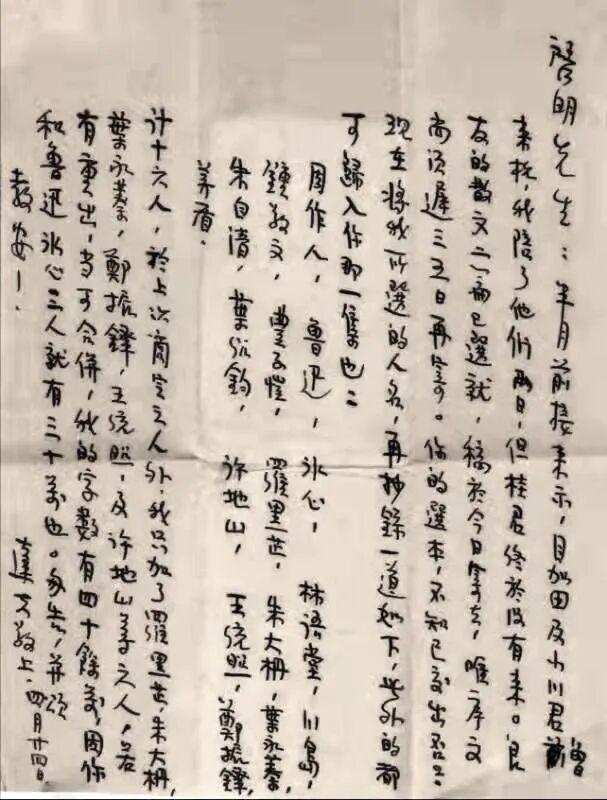 啓明先生：半月前接来示，目加田及小川君曾
来杭，我陪了他们两日，但桂君终於没有来。良
友的散文二已選就，稿於今日寄去，唯序文
尚须遲三五日再寄。你的選本，不知已交出否？
现在将我所選的人名，再抄録一道如下，此外的都
可歸入你那一集也：
周作人，魯迅，冰心，林語堂，川島，
鍾敬文，豐子愷，羅黑芷，朱大枬，葉永蓁，
朱自清，葉紹鈞，許地山，王統照，鄭振鐸，
茅盾．
计十六人，於上次商定之人外，我只加了羅黑芷，朱大枬，
葉永蓁，鄭振鐸，王統照，及許地山等六人，若
有重出，当可合併，我的字数有四十餘萬，因你
和魯迅冰心三人就有三十萬也。匆告，並頌
教安！
達夫敬上．四月廿四日